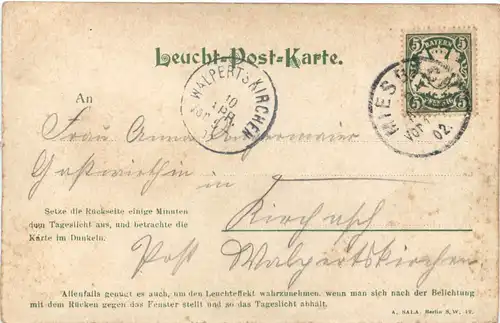 Leucht-Post-Karte.
BAYERN
5 5
5 5
WALPERTSKIRCHEN
10
APR
MIESB
VOR
02.
An
Frau Anna
Gastwirthin in
Setze die Rückseite einige Minuten
dem Tageslicht aus, und betrachte die
Karte im Dunkeln.
Kirchasch
Post Walpertskirchen
Allenfalls genügt es auch, um den Leuchteffekt wahrzunehmen, wenn man sich nach der Belichtung
mit dem Rücken gegen das Fenster stellt und so das Tageslicht abhält.
A. SALA, Berlin S.W. 12.